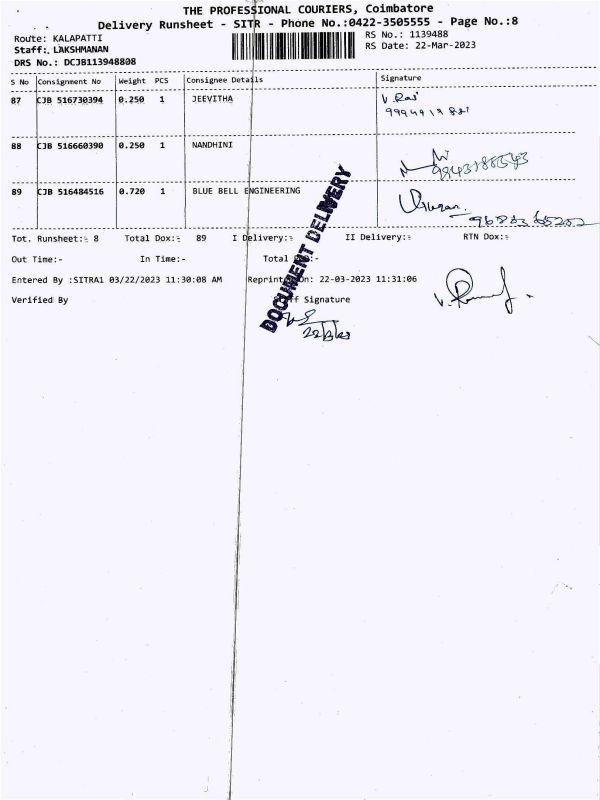 THE PROFESSIONAL COURIERS, Coimbatore
Delivery Runsheet - SITR - Phone No.:0422-3505555 - Page No.:8
Route: KALAPATTI
RS No.: 1139488
Staff:. LAKSHMANAN
RS Date: 22-Mar-2023
DRS No.: DCJB113948808
S No Consignment No Weight PCS Consignee Details Signature
87 CJB 516730394 0.250 1 JEEVITHA V. Raj
88 CJB 516660390 0.250 1 NANDHINI
89 CJB 516484516 0.720 1 BLUE BELL ENGINEERING
Tot. Runsheet:- 8 Total Dox:- 89 I Delivery:- II Delivery:- RTN Dox:-
Out Time:- In Time:- Total :-
Entered By :SITRA1 03/22/2023 11:30:08 AM Reprint On: 22-03-2023 11:31:06
Verified By Staff Signature
DOCUMENT DELIVERY
22/3/23